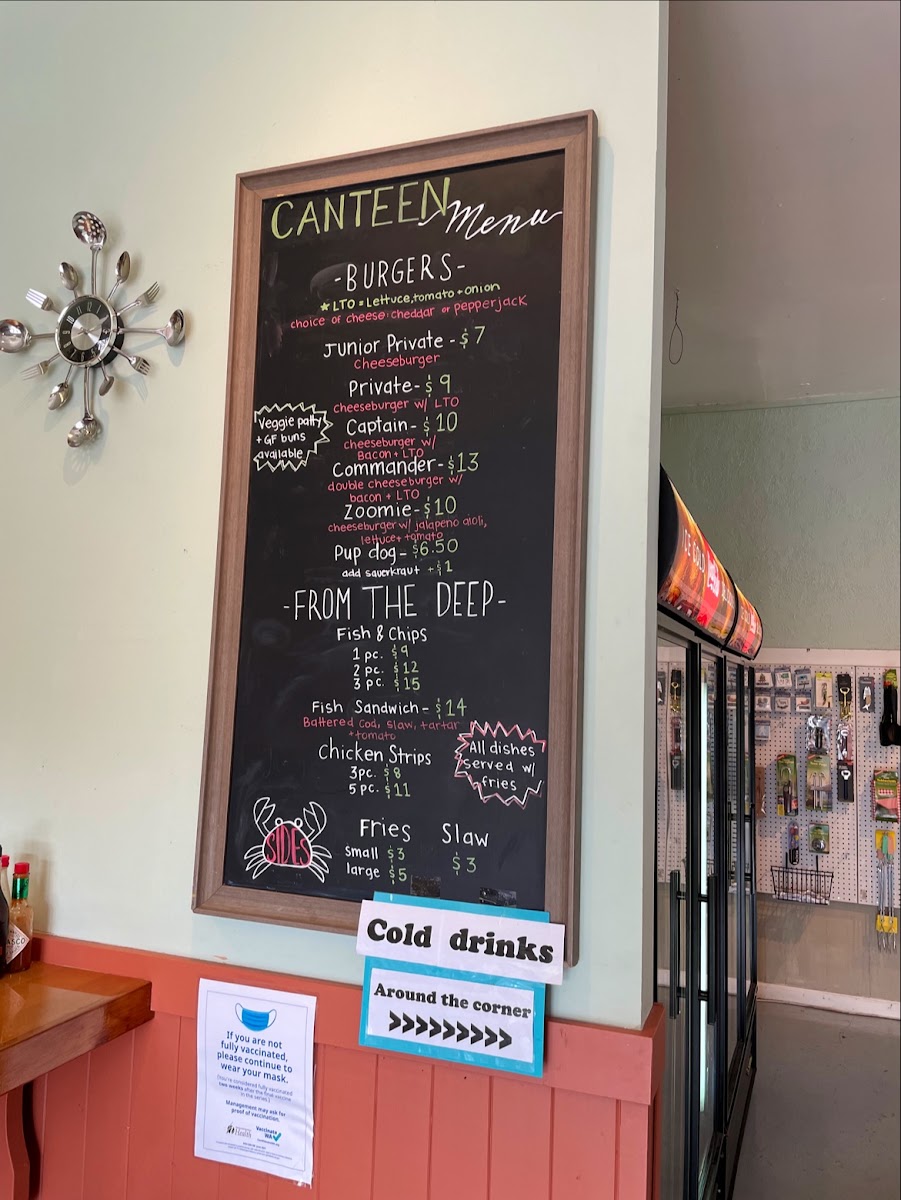 CANTEEN Menu
-BURGERS-
★ LTO = Lettuce, tomato + onion
choice of cheese: cheddar or pepperjack
Junior Private - $7
cheeseburger
Private - $9
cheeseburger w/ LTO
Veggie patty
+ GF buns
available
Captain - $10
cheeseburger w/
Bacon + LTO
Commander - $13
double cheeseburger w/
bacon + LTO
Zoomie - $10
cheeseburger w/ jalapeno aioli,
lettuce + tomato
Pup dog - $6.50
add sauerkraut + $1
-FROM THE DEEP-
Fish & Chips
1 pc. $9
2 pc. $12
3 pc. $15
Fish Sandwich - $14
Battered cod, slaw, tartar
+ tomato
Chicken Strips
3pc. $8
5 pc. $11
All dishes
served w/
fries
SIDES
Fries
small $3
large $5
Slaw
$3
Cold drinks
Around the corner
>>>>>>>>
If you are not
fully vaccinated,
please continue to
wear your mask.
Management may ask for
proof of vaccination.
Health
Vaccinate
WA
ICE COLD